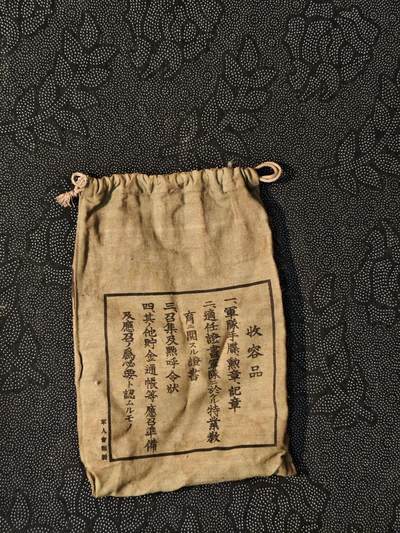 收容品
一、軍隊手牒、勲章、記章
二、適任證書、軍隊ニ於ケル特業教
育ニ関スル證書
三、召集及點呼令狀
四、其ノ他貯金通帳等應召準備
及應召ノ爲必要ト認ムルモノ